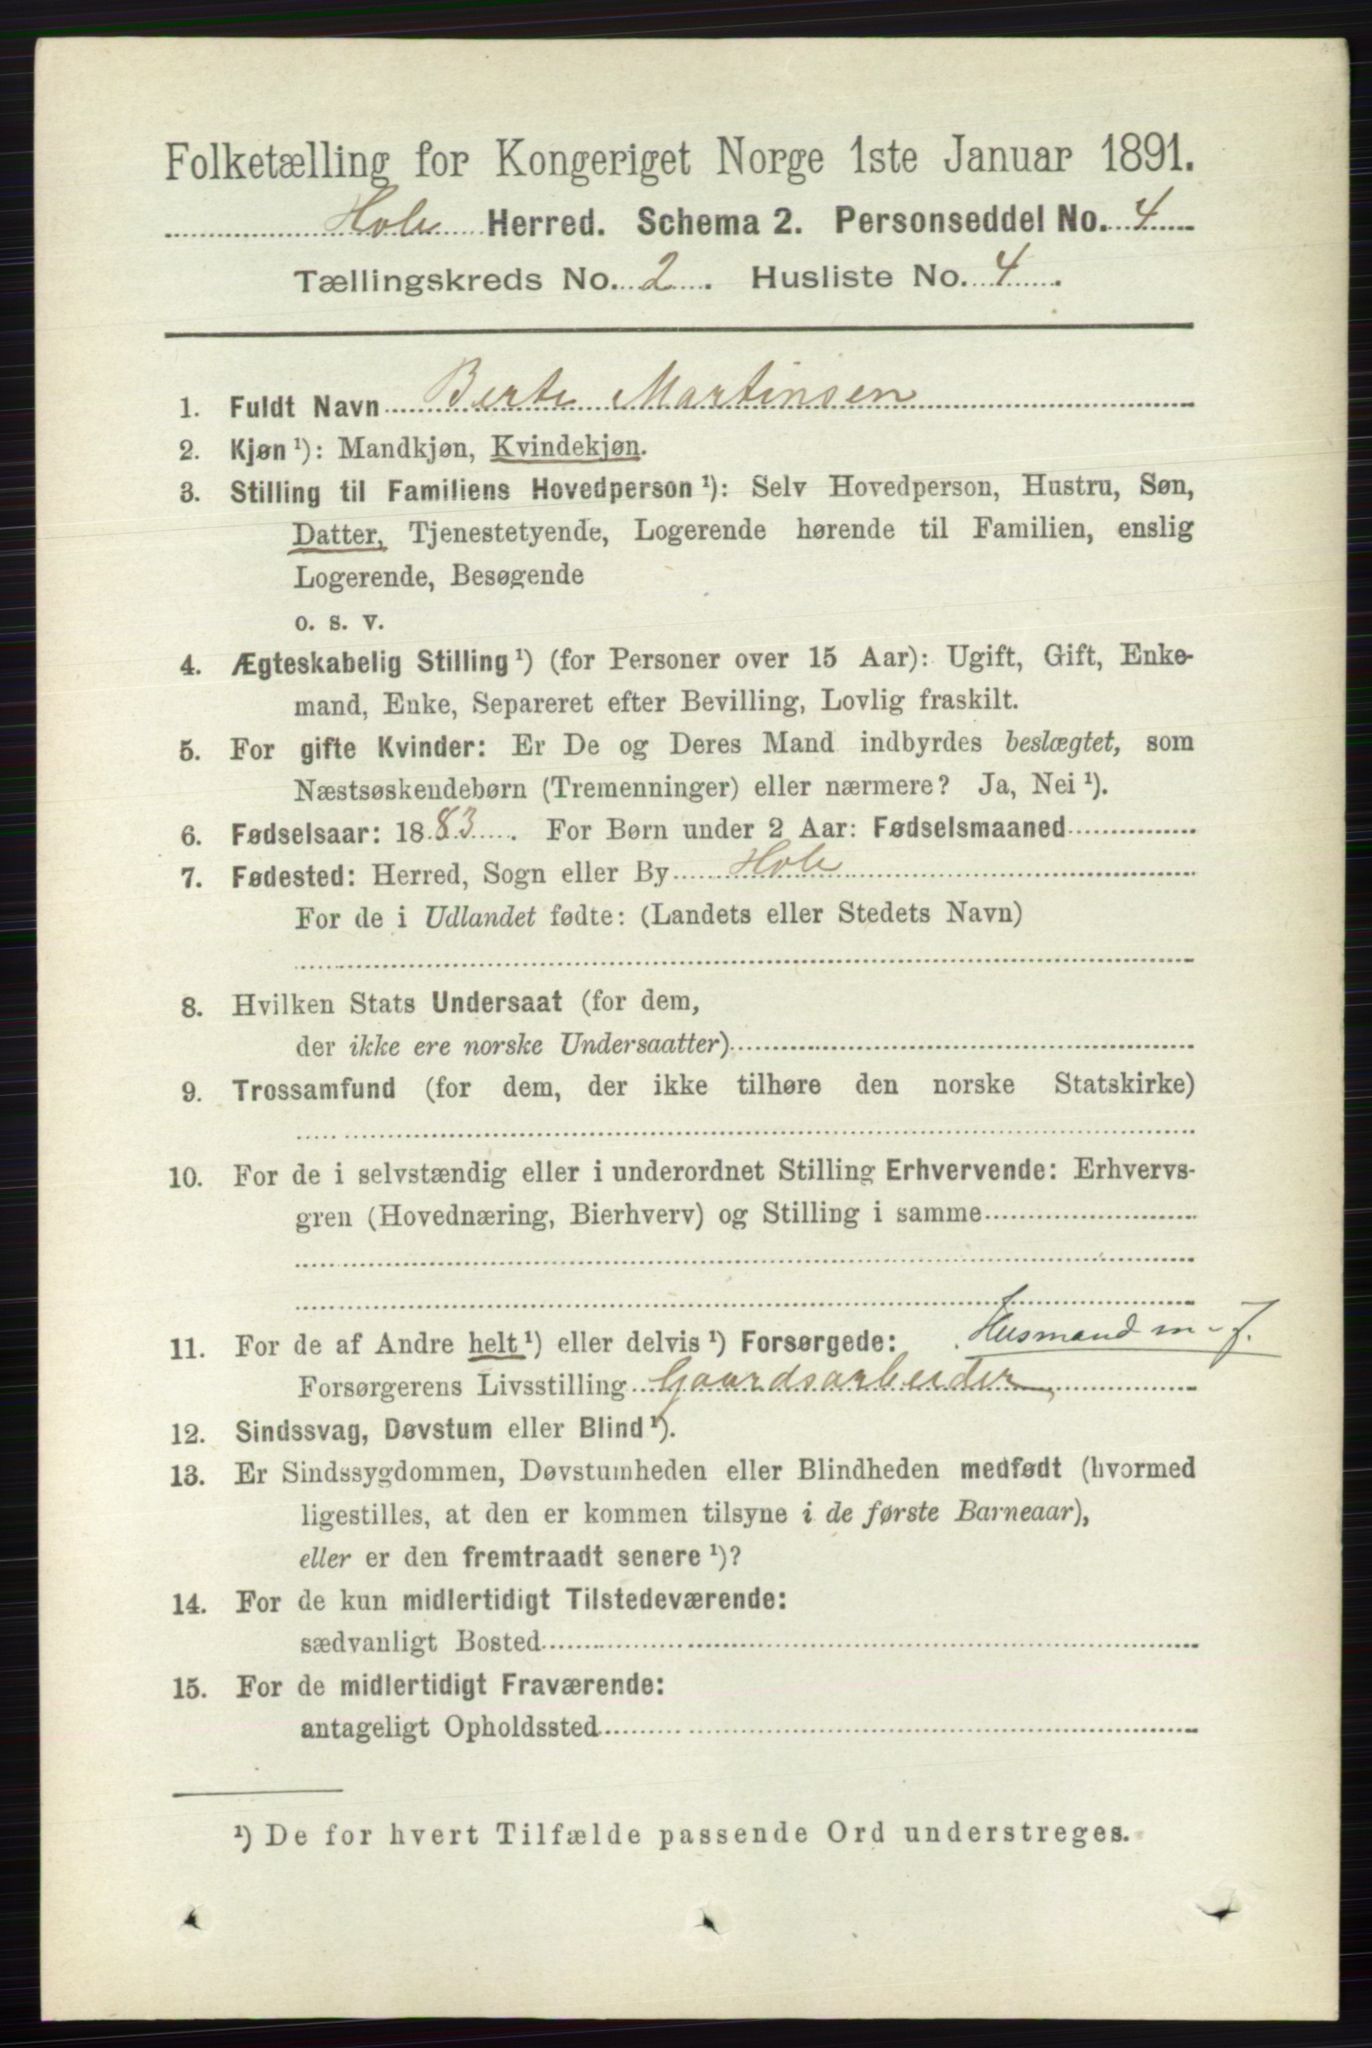 Folketælling for Kongeriget Norge 1ste Januar 1891.
Hole Herred. Schema 2. Personseddel No. 4
Tællingskreds No. 2. Husliste No. 4.
1. Fuldt Navn Berte Martinsen
2. Kjøn¹): Mandkjøn, Kvindekjøn.
3. Stilling til Familiens Hovedperson¹): Selv Hovedperson, Hustru, Søn,
Datter, Tjenestetyende, Logerende hørende til Familien, enslig
Logerende, Besøgende
o. s. v.
4. Ægteskabelig Stilling¹) (for Personer over 15 Aar): Ugift, Gift, Enke-
mand, Enke, Separeret efter Bevilling, Lovlig fraskilt.
5. For gifte Kvinder: Er De og Deres Mand indbyrdes beslægtet, som
Næstsøskendebørn (Tremenninger) eller nærmere? Ja, Nei¹).
6. Fødselsaar: 1883. For Børn under 2 Aar: Fødselsmaaned
7. Fødested: Herred, Sogn eller By Hole
For de i Udlandet fødte: (Landets eller Stedets Navn)
8. Hvilken Stats Undersaat (for dem,
der ikke ere norske Undersaatter)
9. Trossamfund (for dem, der ikke tilhøre den norske Statskirke)
10. For de i selvstændig eller i underordnet Stilling Erhvervende: Erhvervs-
gren (Hovednæring, Bierhverv) og Stilling i samme
11. For de af Andre helt¹) eller delvis¹) Forsørgede: Husmand m-J.
Forsørgerens Livsstilling Gaardsarbeider
12. Sindssvag, Døvstum eller Blind¹).
13. Er Sindssygdommen, Døvstumheden eller Blindheden medfødt (hvormed
ligestilles, at den er kommen tilsyne i de første Barneaar),
eller er den fremtraadt senere¹)?
14. For de kun midlertidigt Tilstedeværende:
sædvanligt Bosted
15. For de midlertidigt Fraværende:
antageligt Opholdssted
¹) De for hvert Tilfælde passende Ord understreges.